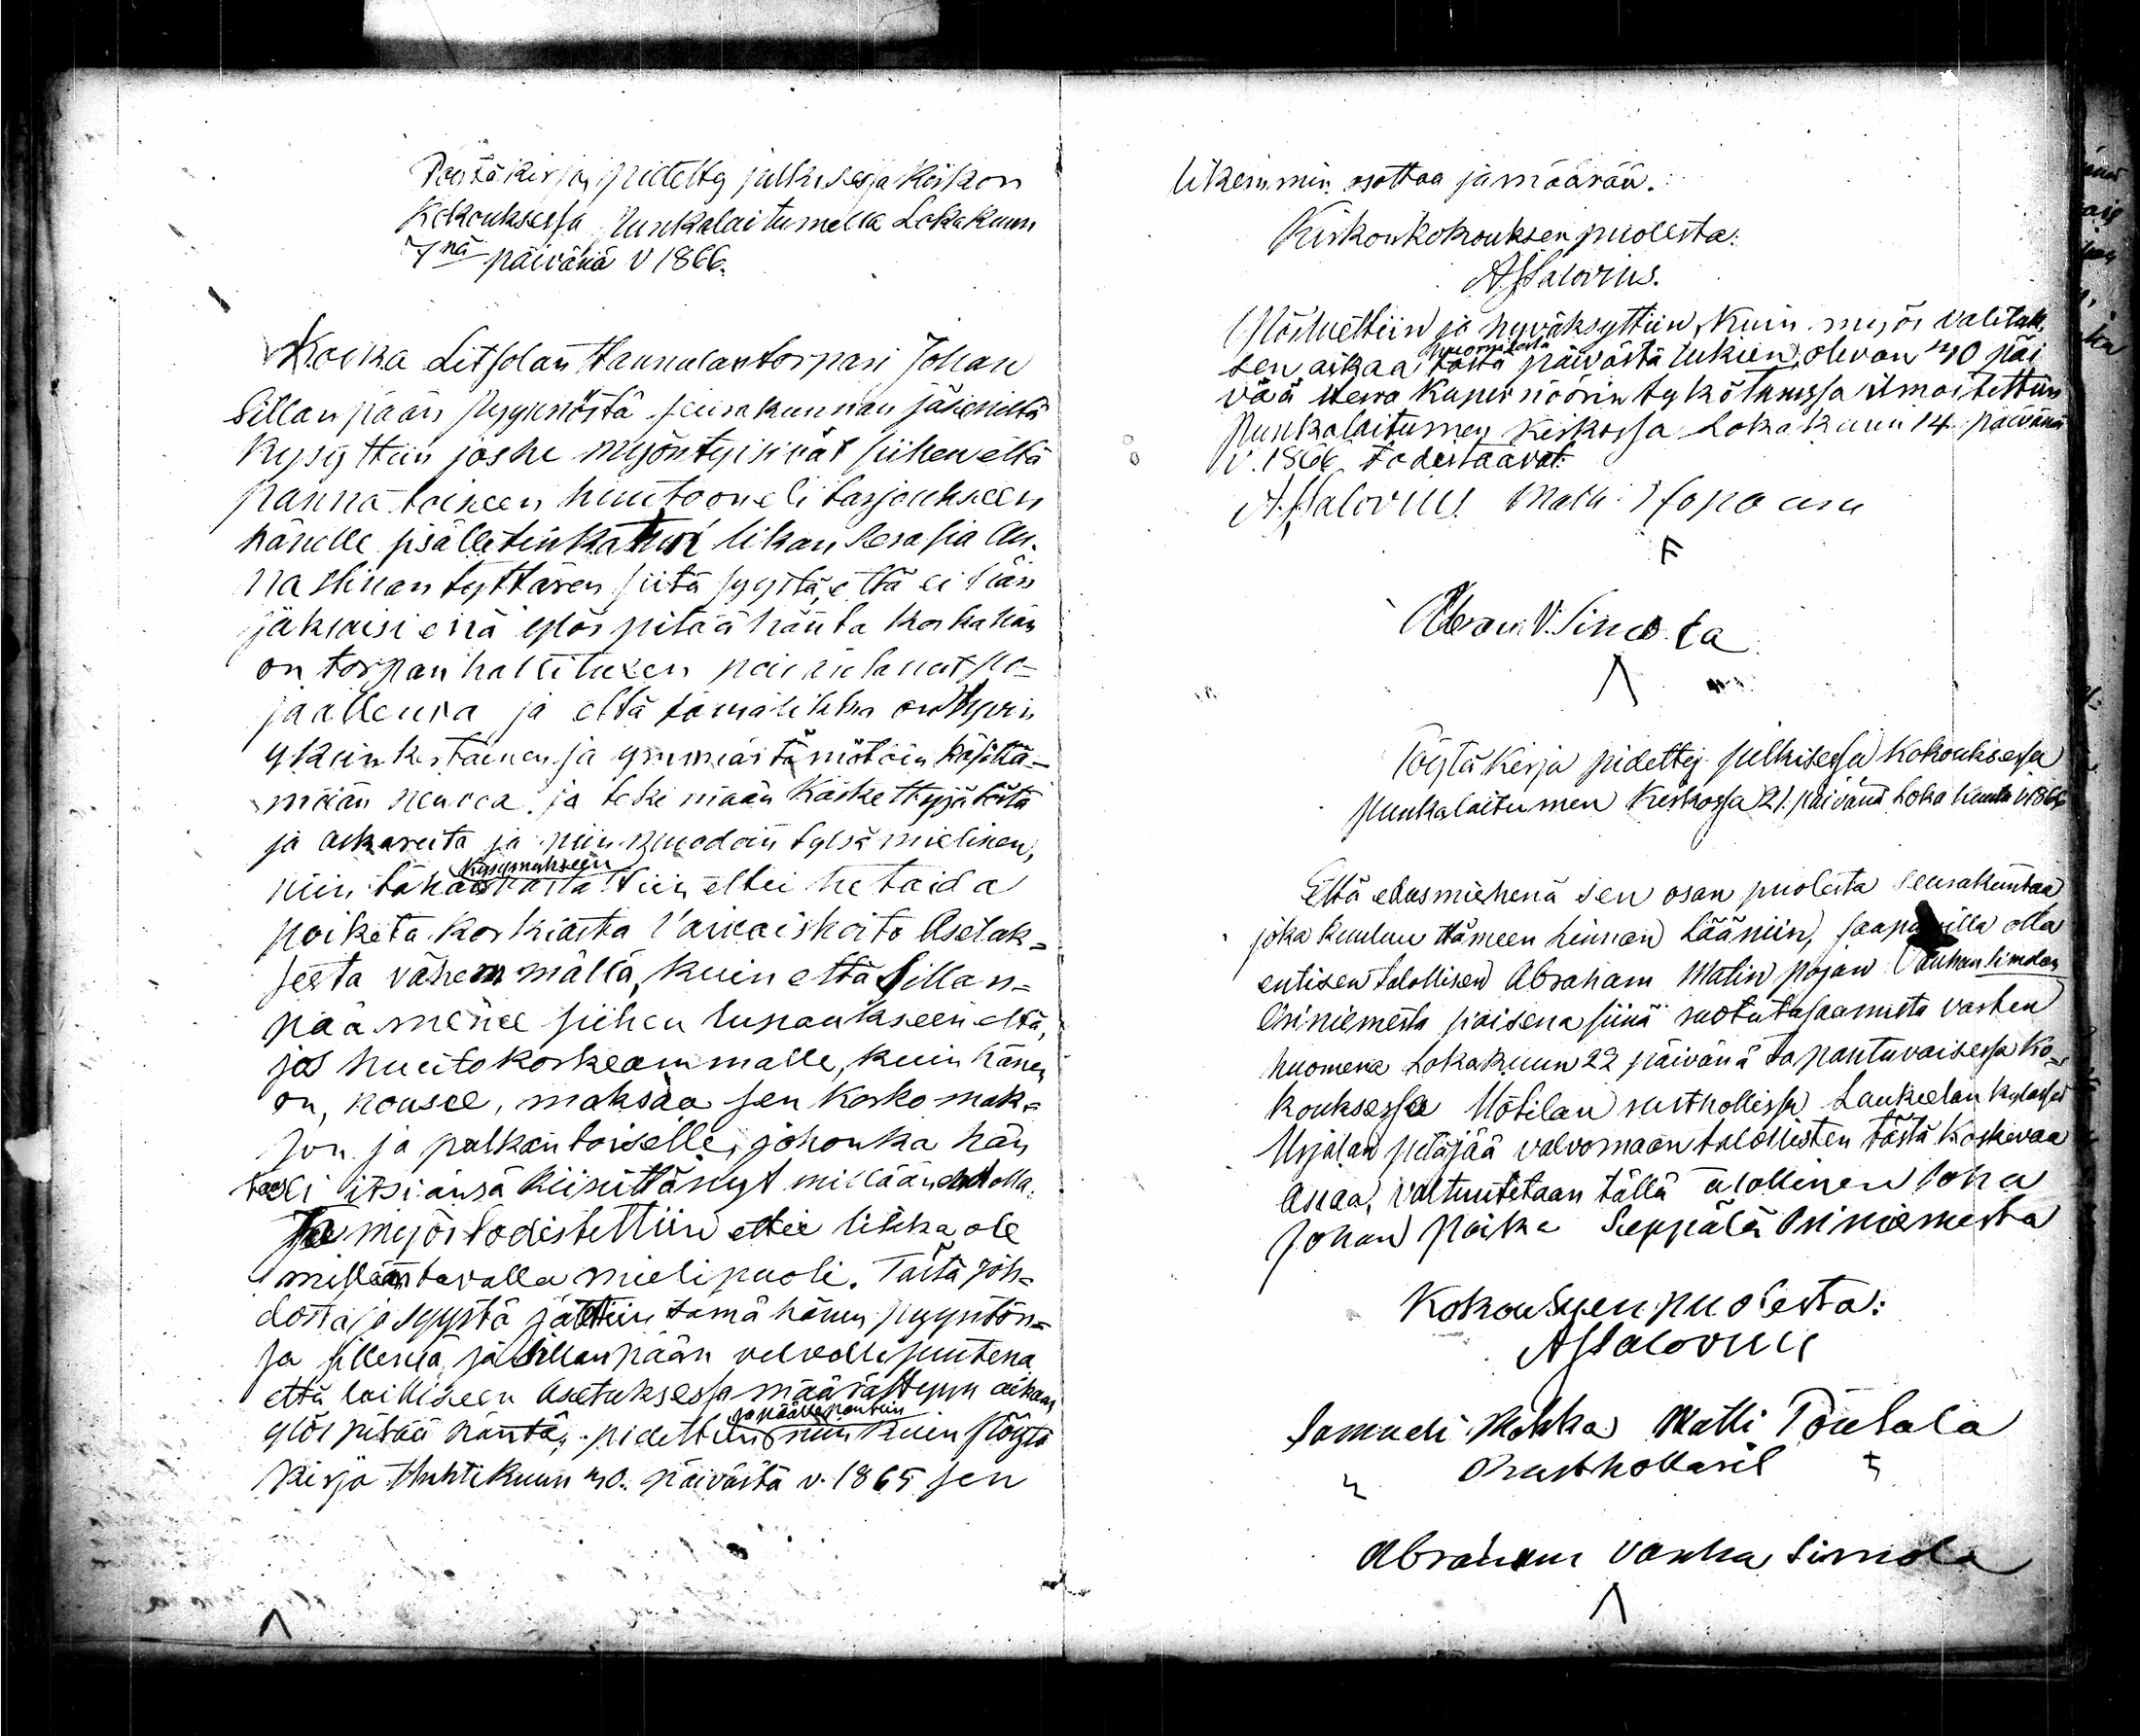 Pöytäkirja, pidetty julkisessa Kirkon
Kokouksessa Punkalaitumella Lokakuun
7nä päivänä v 1866.
Koska Liitsolan Hannulan torpari Johan
Sillanpään pyynnöstä seurakunnan jäseniltä
kysyttiin josko myöntyisivät siihen että
panna toiseen huutoon eli tarjoukseen
hänelle sisälletinkatun likan Serafia An-
na Stinan tyttären siitä syystä, että ei hän
jaksaisi enä ylös pitää häntä koska hän
on torpan hallituksen poisantanut po-
jaallensa ja että tämä likka on hyvin
yksinkertainen ja ymmärtämätöin käsittä-
mään neuvoa ja tekemään käskettyjä töitä
ja askareita ja niin muodoin tylsä mielinen,
niin tähän Kysymykseen vastattiin ettei he taida
poiketa korkiasta Vaivaishoito Asetuk-
sesta vähemmällä, kuin että Sillan-
pää menee siihen lupaukseen että,
jos huuto korkeammalle, kuin hänen
on, nousee, maksaa sen korko mak-
son ja palkan toiselle, johonka hän
itsiänsä kiinittänyt millään
Ja myös todistettiin ettei likka ole
millään tavalla mielipuoli. Tästä joh-
dosta ja syystä jätettiin tämä hänen pyyntön-
sä sillensä ja Sillanpään velvollisuutena
että lailliseen Asetuksessa määrättyyn aikaan
ylös pitää häntä, pidettiin ja päälle pantiin niin kuin Pöytä
kirja Huhtikuun 30. päivästä v. 1865 sen
likemmin osottaa ja määrää.
Kirkonkokouksen puolesta:
A Salovius.
Ylösluettiin ja hyväksyttiin, kuin myös valituk-
sen aikaa huomisesta päivästä lukien olevan 30 päi
vää Herra Kuvernöörin tykö tunnssa ilmoitettiin
Punkalaitumen Kirkossa Lokakuun 14 päivänä
v. 1866 todestaavat:
A. Salovius Matti
Abram V. Simola
Pöytäkirja pidetty julkisessa Kokouksessa
Punkalaitumen Kirkossa 21. päivänä Loka kuuta v 1866
Että edusmiehenä sen osan puolesta seurakuntaa
joka kuuluu Hämeen Linnan Lääniin, saapuvilla olla
entisen talollisen Abraham Matin pojan Vanhan Simolan
Oriniemestä poisena siinä vasten
huomena Lokakuun 22 päivänä tapahtuvaisessa Ko-
kouksessa Mötilän rusthollissa Laukeelan kylässä
Urjalan pitäjää valvomaan talollisten tästä koskevaa
asiaa, valtuutetaan tällä talollinen Joha
Johan poika Seppälä Oriniemestä
Kokouksen puolesta:
A Salovius
Samueli Matti
Rusthollarit
Abraham Vanha Simola